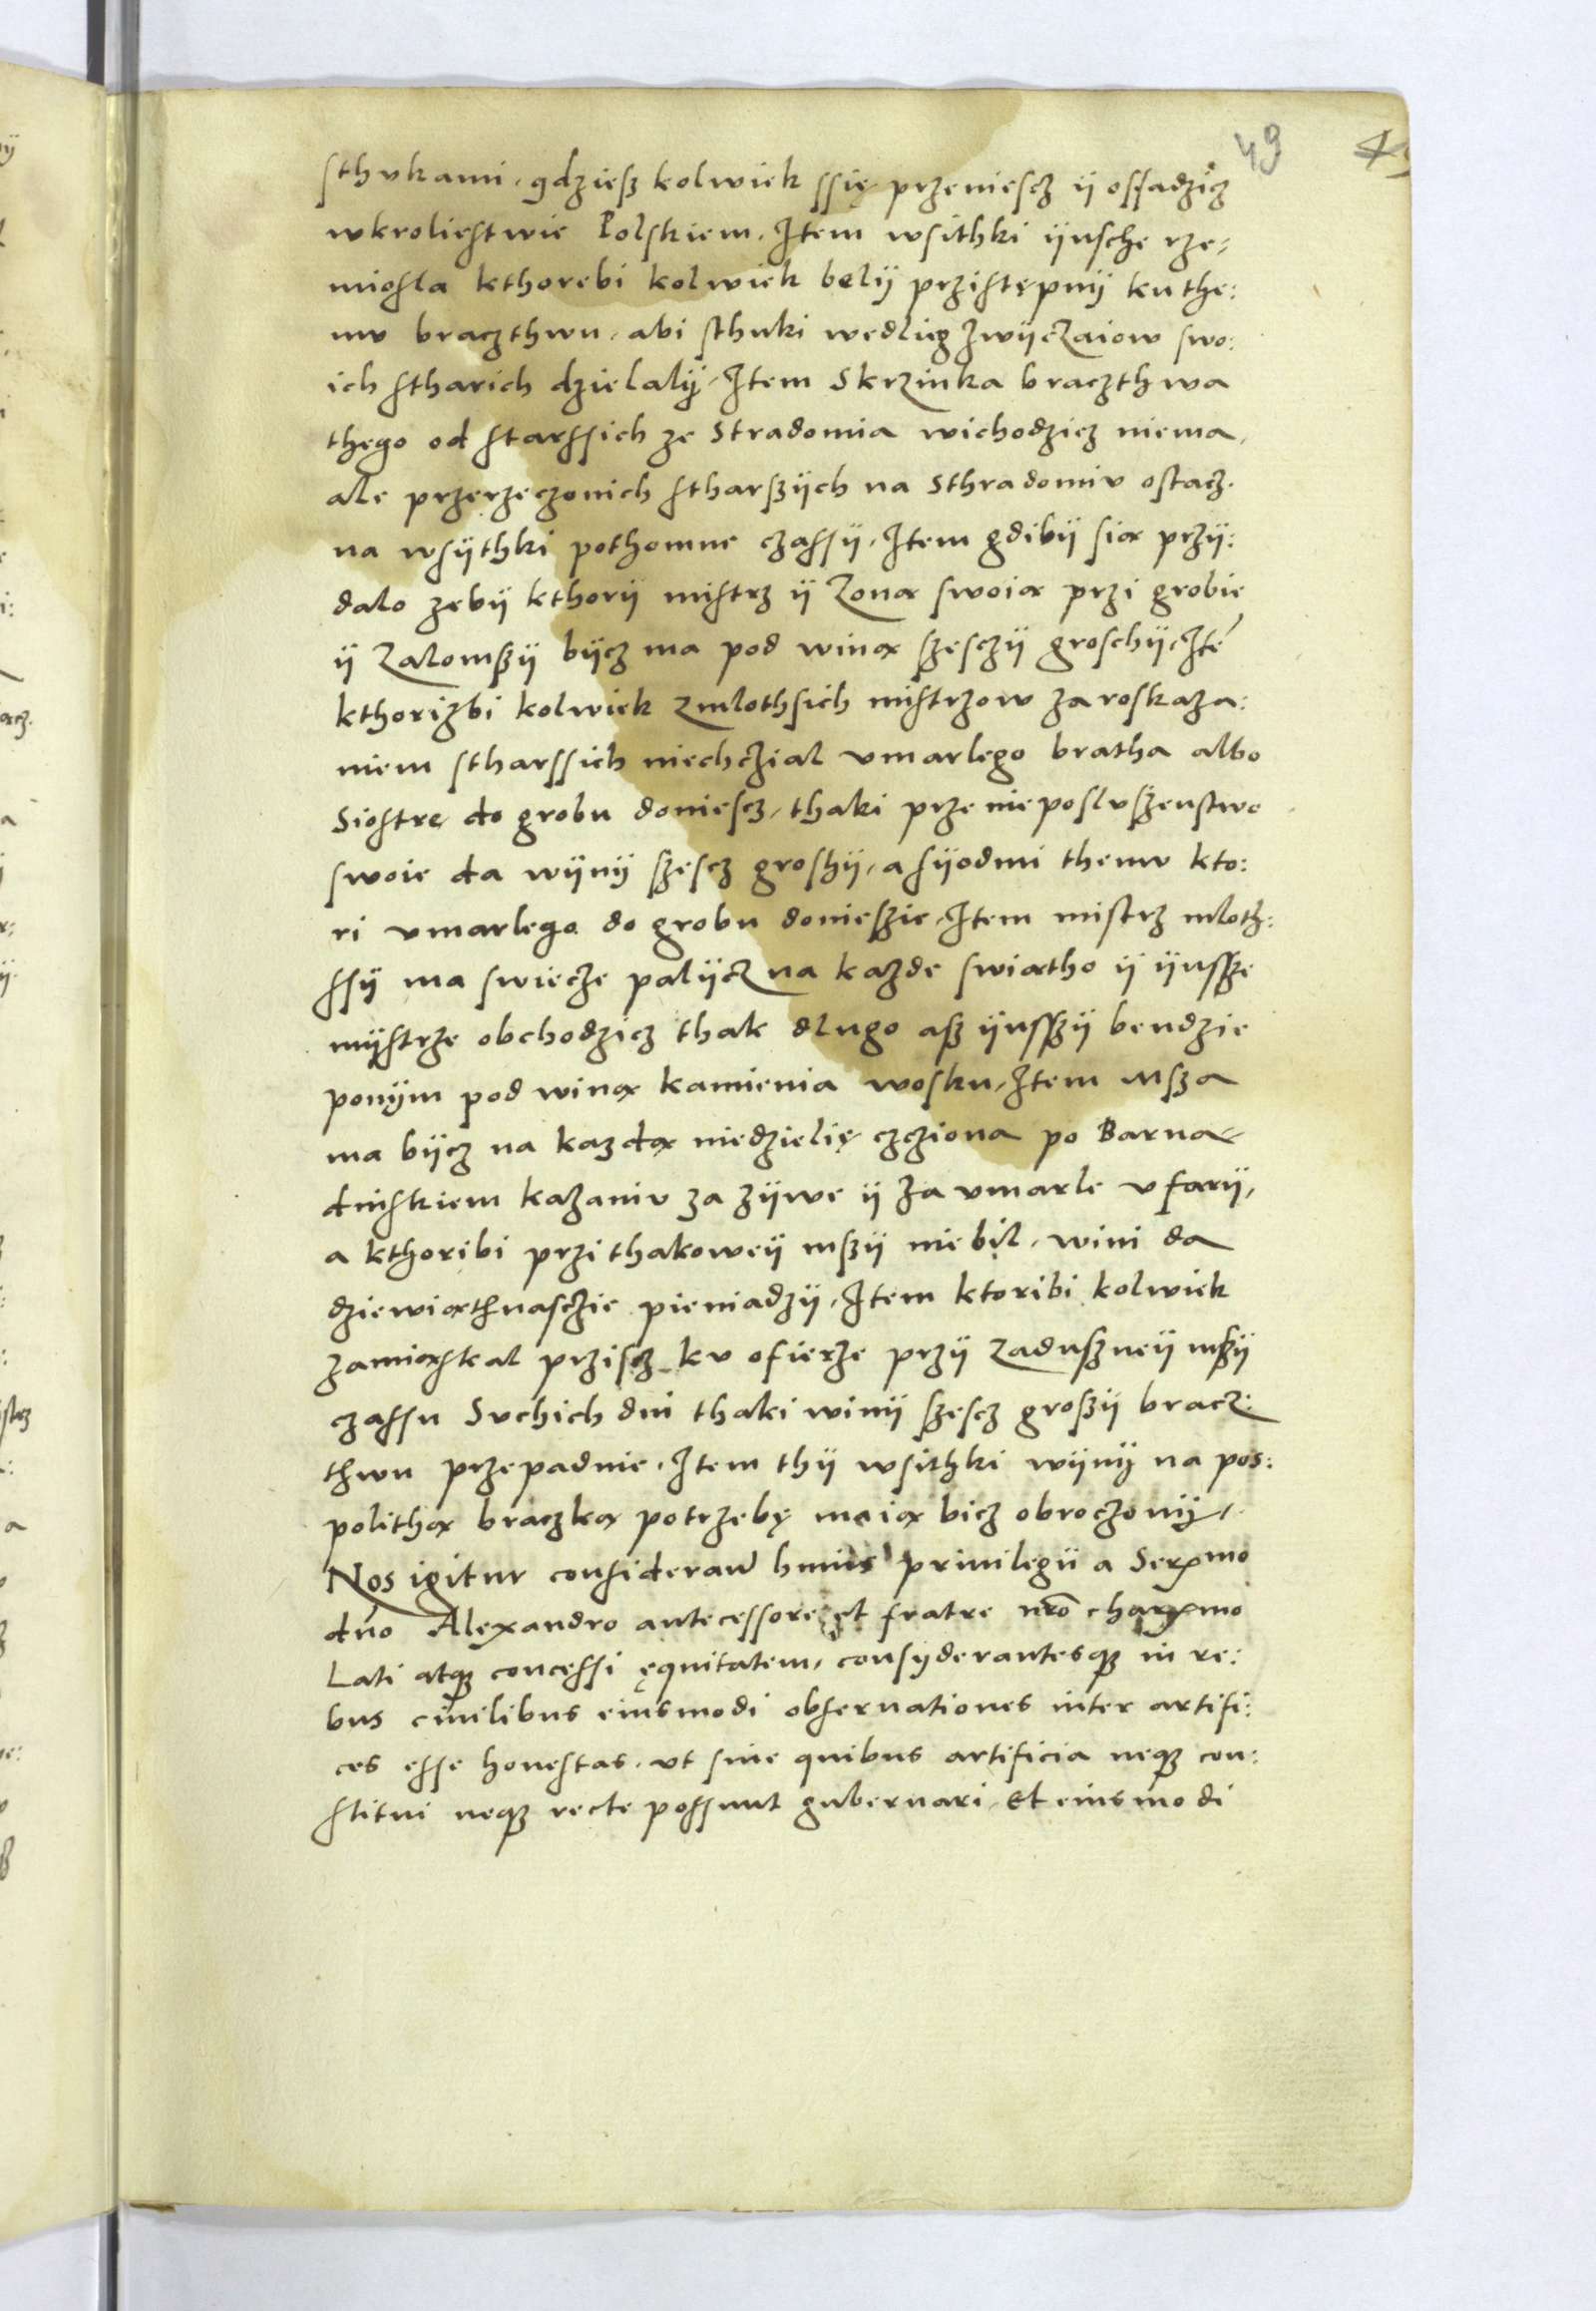 49
sthvkami, gdziesz kolwiek ssię przeniescz ÿ ossadzicz
wkroliestwie Polskiem. Item wsithki ÿnsche rze-
miosla kthorebi kolwiek belÿ przistępnÿ kuthe:
mv braczthwu, abi sthuki wedlieg zwÿczaiow swo:
ich stharich dzielalÿ, Item Skrzinka braczthwa
thego od starssich ze Stradomia wichodzicz niema,
ale przerzeczonich stharszÿch na Sthradomiv ostacz.
na wsÿthki pothomne czassÿ, Item gdibÿ sią przÿ:
dalo zebÿ kthorÿ mistrz ÿ zoną swoią przi grobie
ÿ zalomszÿ bÿcz ma pod winą szesczÿ groschÿ, Ite͂
kthorizbi kolwiek zmlothsich mistrzow za roskaza:
niem stharssich niechczial vmarlego bratha albo
Siostre do grobu doniescz, thaki prze nieposlvszenstwo
swoie da wÿnÿ szescz groszÿ, a sÿodmi themv kto:
ri vmarlego do grobu doniesie, Item mistrz mloth:
ssÿ ma swiecze palÿcz na kazde swiątho ÿ ÿnssze
mÿstrze obchodzicz thak dlugo asz ÿnsszÿ bendzie
ponÿm pod winą kamienia wosku, Item Msza
ma bÿcz na kazdą niedzielię czcziona po Barna-
dinskiem kazaniv za zÿwe ÿ za vmarle v farÿ,
a kthoribi przi thakoweÿ mszÿ nie bil, wini da
dziewiąthnasczie pieniadzÿ, Item ktoribi kolwiek
zamięskal prziscz kv ofierze przÿ zaduszneÿ mszÿ
czassu Svchich dni thaki winÿ szescz groszÿ bracz:
thwu przepadnie. Item thÿ wsithki wÿnÿ na pos:
polithą braczką potrzebę maią bicz obroczonÿ,
Nos igitur considerata huius priuilegii a Serᵐᵒ
dn͂o Alexandro antecessore et fratre nr͂o charᵐᵒ
Lati atq̃ concessi ęquitatem, consÿderantesq̃ in re:
bus ciuilibus eiusmodi obseruationes inter artifi:
ces esse honestas, vt sine quibus artificia neq̃ con:
stitui neq̃ recte possunt gubernari, et eiusmodi